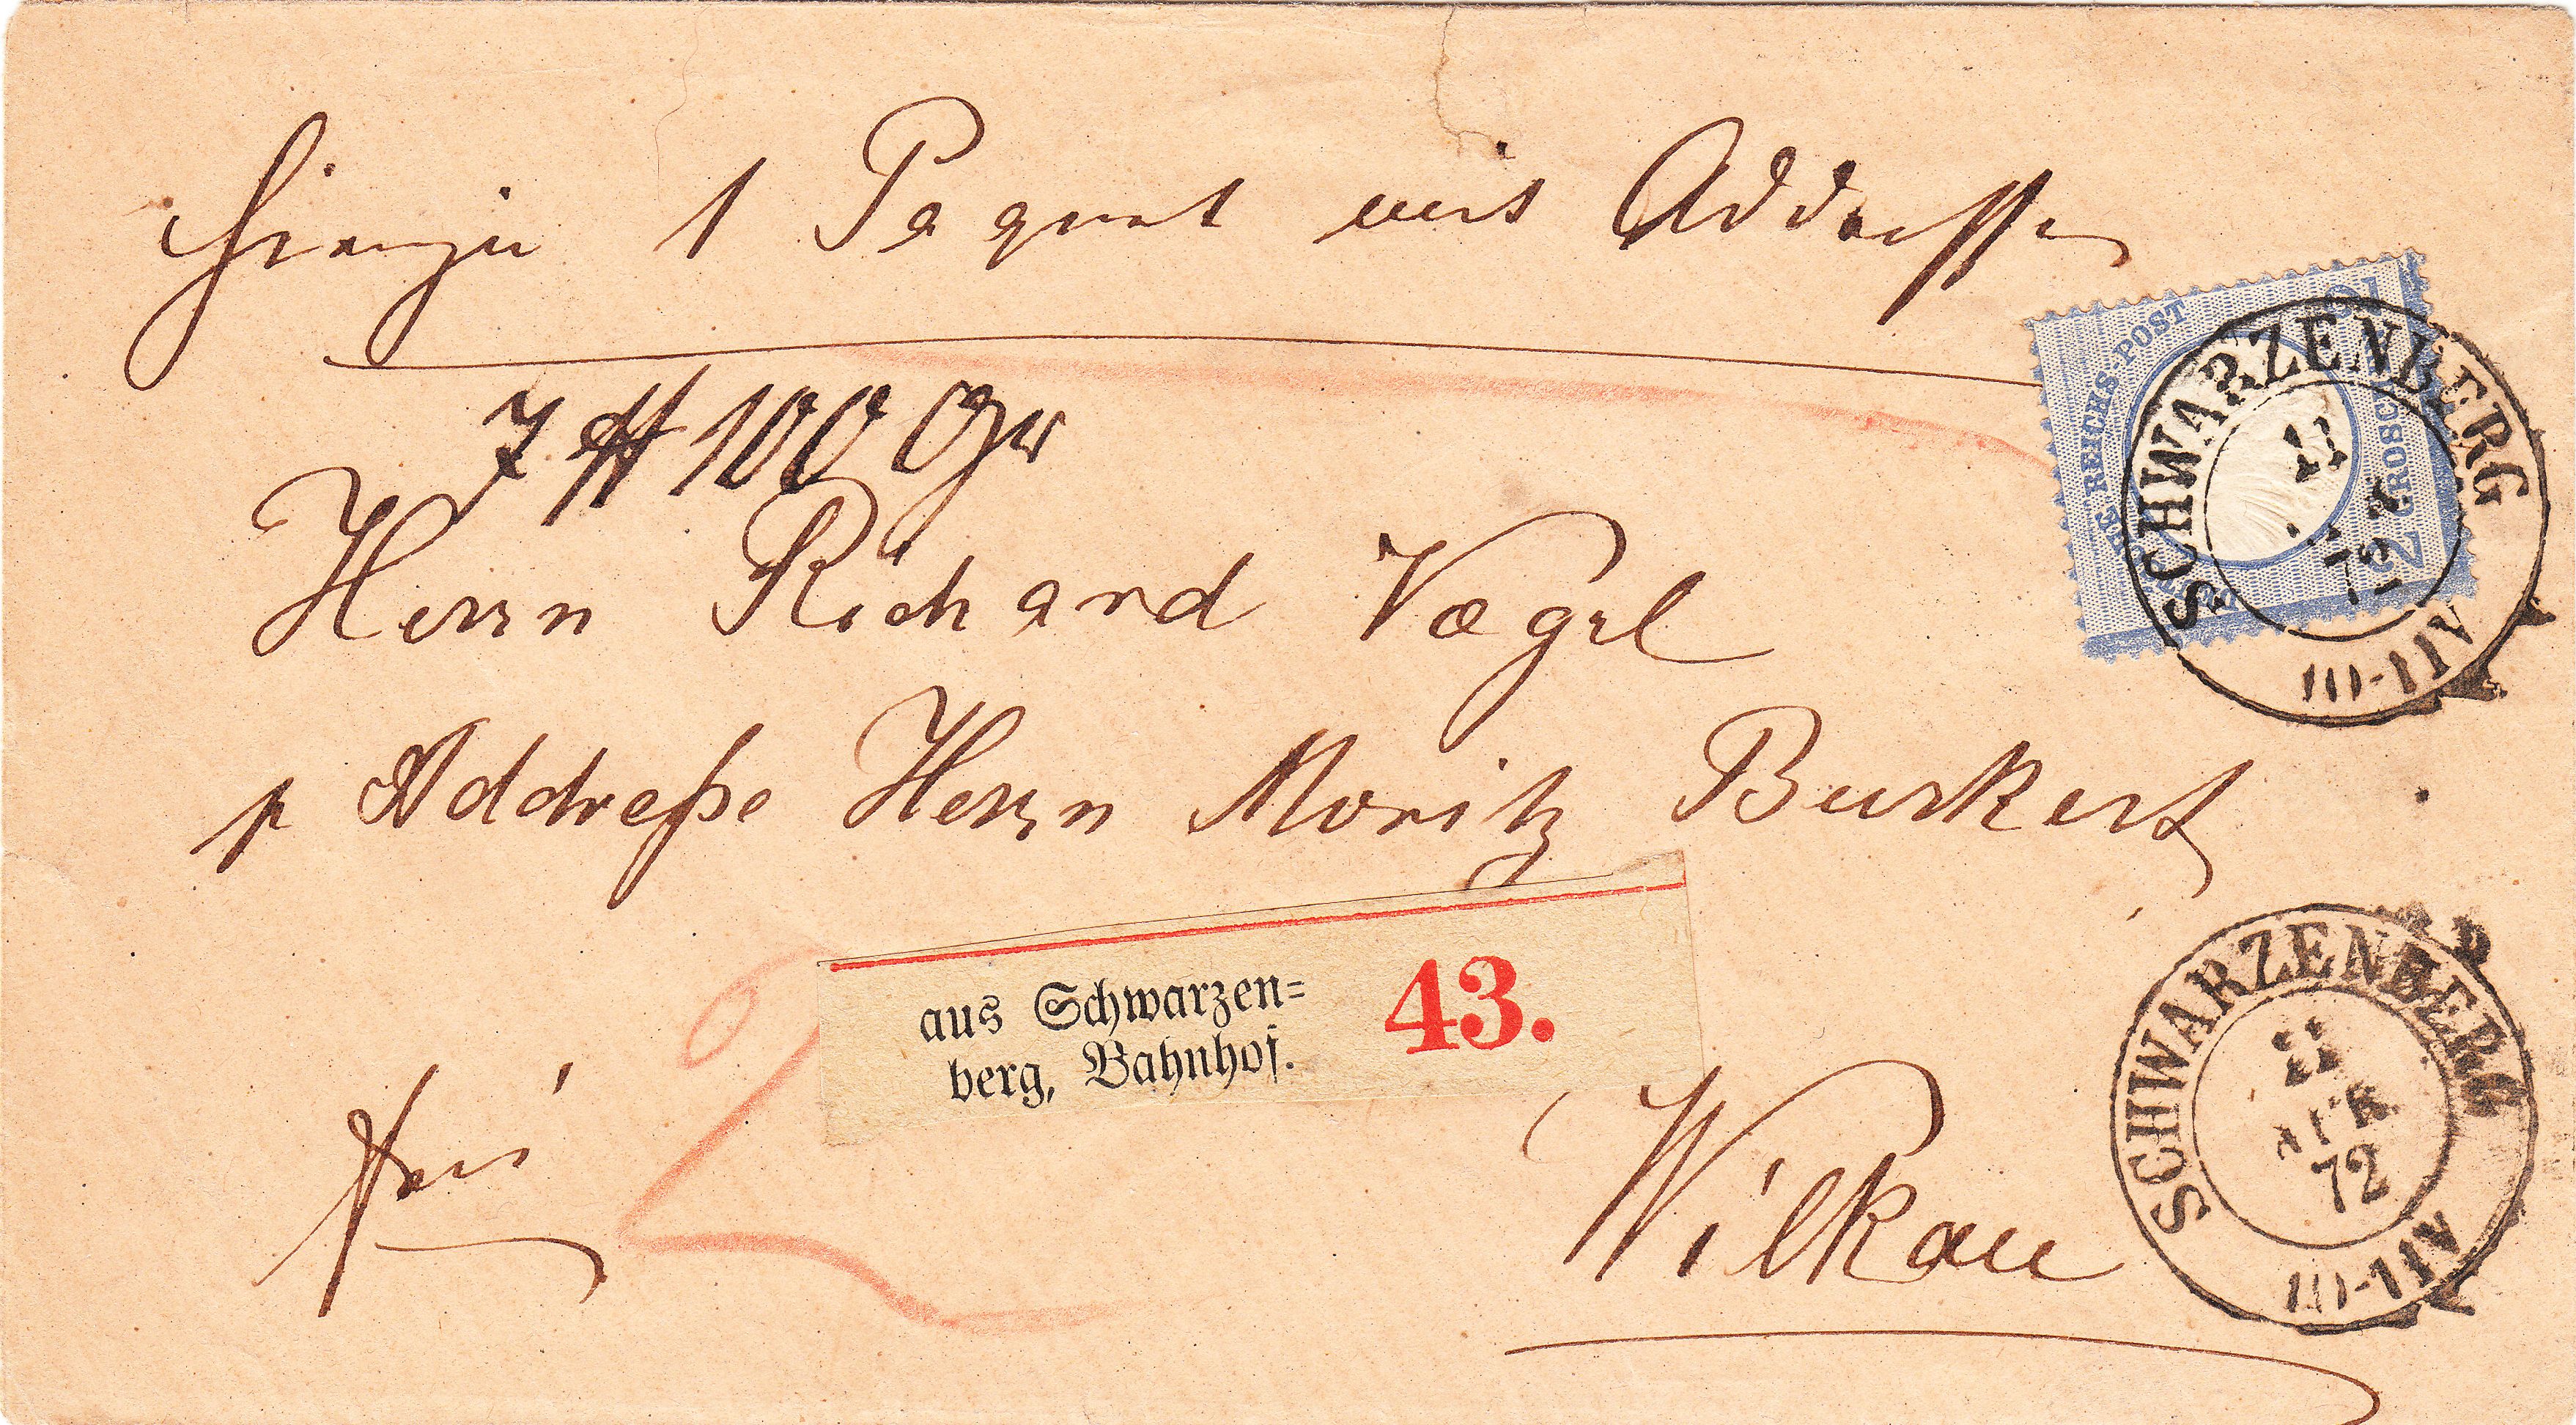 Hierzu 1 Paquet mit Addresse
7 ℔ 100 Gr
Herrn Richard Vogel
p Addreße Herrn Moritz Burkert
aus Schwarzen= 43.
berg, Bahnhof.
frei
Wilkau
REICHS-POST
2 GROSCH
SCHWARZENBERG
11
72
10-11V
SCHWARZENBERG
11
APR
72
10-11V
2